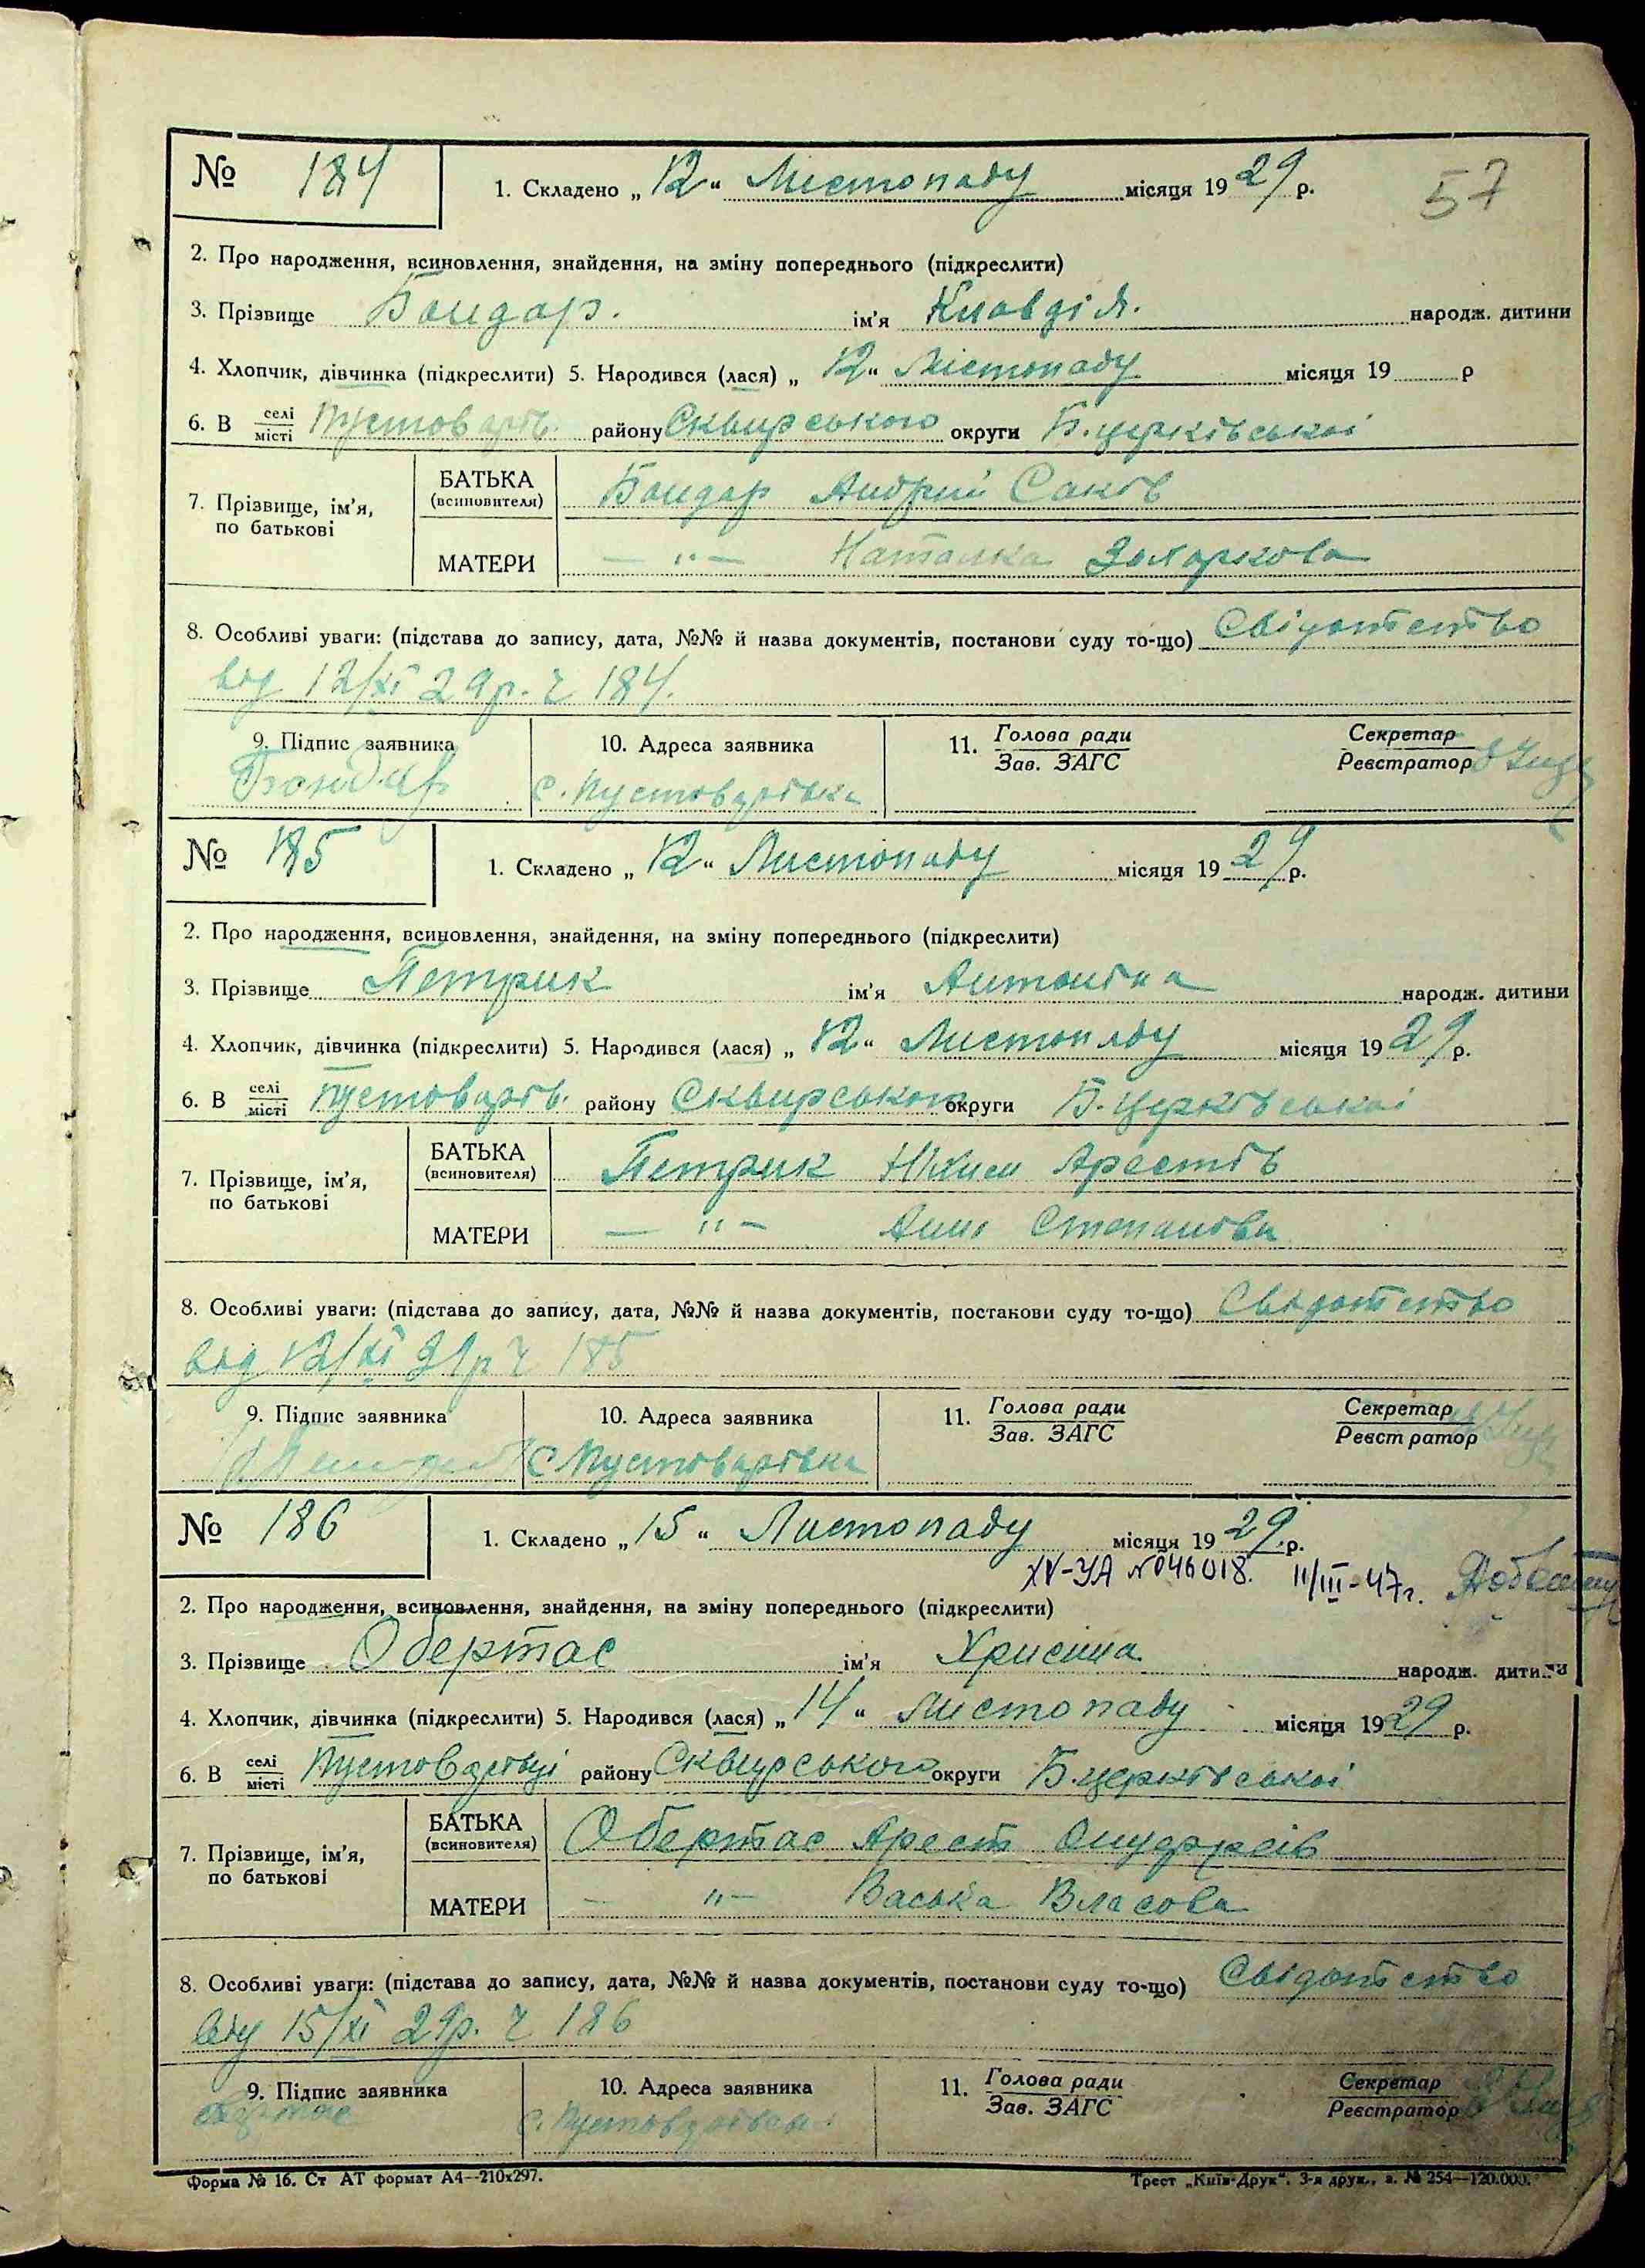 № 184
1. Складено „ 12 “ Листопаду місяця 1929 р.
57
2. Про народження, всиновлення, знайдення, на зміну попереднього (підкреслити)
3. Прізвище Бондар. ім'я Клавдія. народж. дитини
4. Хлопчик, дівчинка (підкреслити) 5. Народився (лася) „ 12 “ Лістопаду місяця 19 р
6. В селі/місті Пустоварів. району Сквирського округи Б.церківської
7. Прізвище, ім'я, по батькові
БАТЬКА (всиновителя) Бондар Андрій Саків
МАТЕРИ — " — Наталка Захаркова
8. Особливі уваги: (підстава до запису, дата, №№ й назва документів, постанови суду то-що) Свідотство
від 12/XI 29р. ч 184.
9. Підпис заявника
10. Адреса заявника
11. Голова ради/Зав. ЗАГС
Секретар/Реєстратор
Бондар с. Пустоварівка
№ 185
1. Складено „ 12 “ Листопаду місяця 1929 р.
2. Про народження, всиновлення, знайдення, на зміну попереднього (підкреслити)
3. Прізвище Петрик ім'я Антоніна народж. дитини
4. Хлопчик, дівчинка (підкреслити) 5. Народився (лася) „ 12 “ Листопаду місяця 1929 р.
6. В селі/місті Пустоварів. району Сквирського округи Б.церківської
7. Прізвище, ім'я, по батькові
БАТЬКА (всиновителя) Петрик Юхим Арестів
МАТЕРИ — " — Степанова
8. Особливі уваги: (підстава до запису, дата, №№ й назва документів, постанови суду то-що) Свідотство
від 12/XI 29р ч 185
9. Підпис заявника
10. Адреса заявника
11. Голова ради/Зав. ЗАГС
Секретар/Реєстратор
с Пустоварівка
№ 186
1. Складено „ 15 “ Листопаду місяця 1929 р.
XV-УА №046018. 11/III-47г.
2. Про народження, всиновлення, знайдення, на зміну попереднього (підкреслити)
3. Прізвище Обертас ім'я Христина народж. дитини
4. Хлопчик, дівчинка (підкреслити) 5. Народився (лася) „ 14 “ Листопаду місяця 1929 р.
6. В селі/місті Пустоварівці району Сквирського округи Б.церківської
7. Прізвище, ім'я, по батькові
БАТЬКА (всиновителя) Обертас Арест Онуфріїв
МАТЕРИ — " — Васька Власова
8. Особливі уваги: (підстава до запису, дата, №№ й назва документів, постанови суду то-що) Свідотство
від 15/XI 29р. ч 186
9. Підпис заявника
10. Адреса заявника
11. Голова ради/Зав. ЗАГС
Секретар/Реєстратор
Обертас с. Пустоварівка
Форма № 16. Ст АТ формат А4--210х297.
Трест „Київ-Друк“. 3-я друк., з. № 254—120.000.